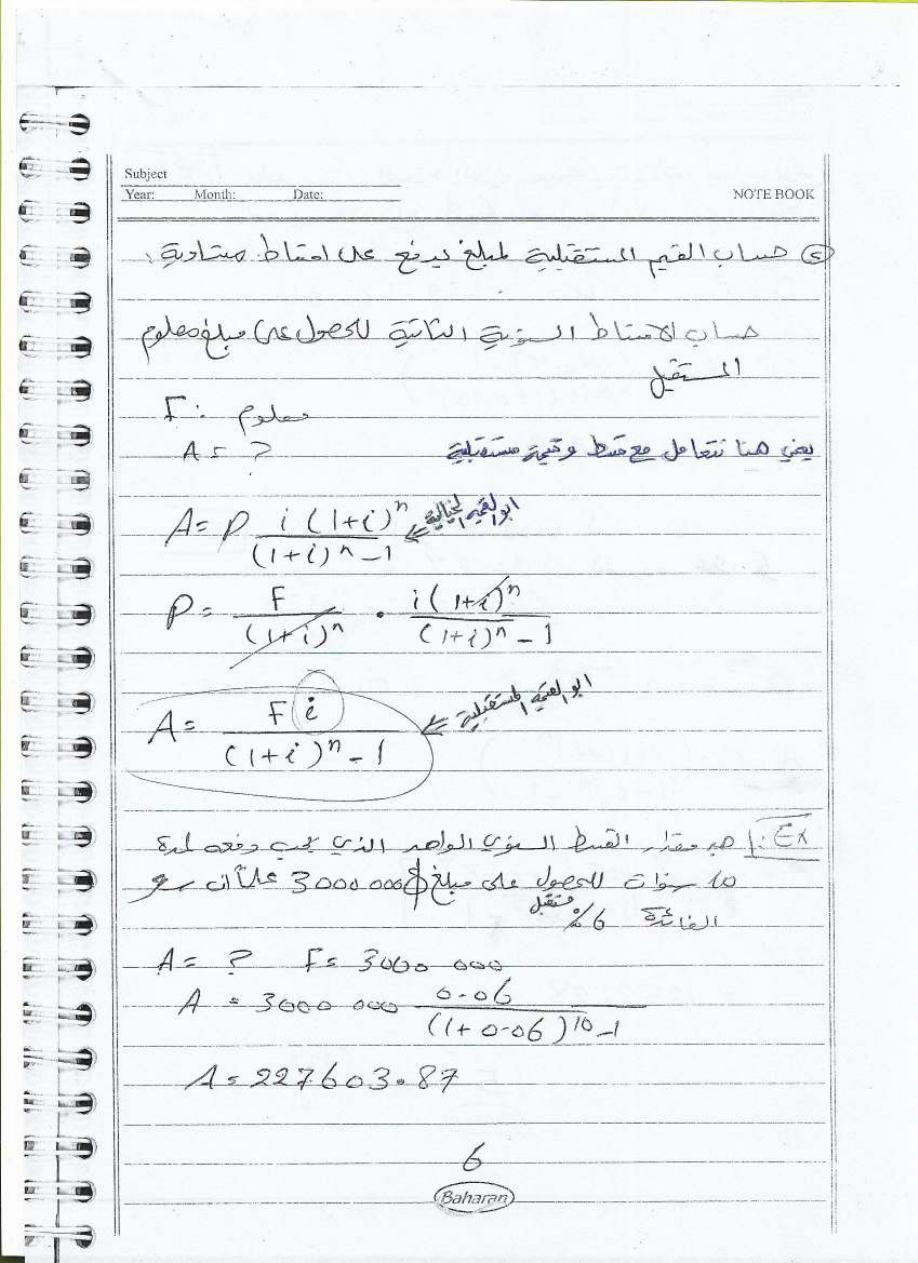 Subject
Year: Month: Date:
NOTE BOOK
حساب القيم المستقبلية لمبلغ يدفع على اقساط متساوية
حساب الاقساط السنوية الثابتة للحصول على مبلغ معلوم
المستقبل
F: معلوم
A = ?
يعني هنا نتعامل مع قسط وقيمة مستقبلية
A = P i(1+i)^n / (1+i)^n - 1 ⇐ ابو القيم الحالية
P = F / (1+i)^n . i(1+i)^n / (1+i)^n - 1
A = F i / (1+i)^n - 1 ⇐ ابو القيمة المستقبلية
Ex: جد مقدار القسط السنوي الواحد الذي يجب دفعه لمدة
10 سنوات للحصول على مبلغ 3000 000 $ علماً ان سعر
مستقبل
الفائدة 6%
A = ? F = 3000 000
A = 3000 000 0.06 / (1+0.06)^10 - 1
A = 227603.87
6
Baharan